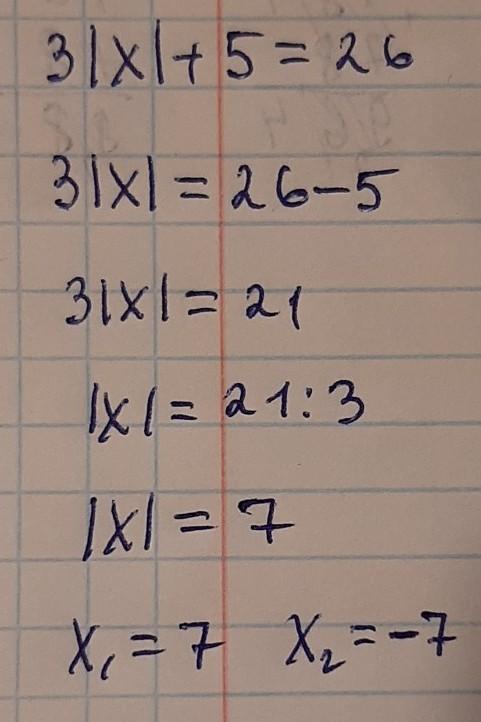 3|x|+5=26
3|x|=26-5
3|x|=21
|x|=21:3
|x|=7
x₁=7 x₂=-7